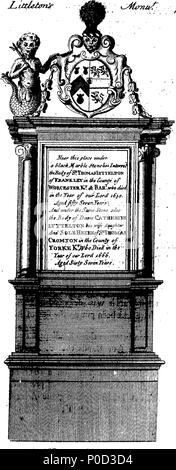 Littleton's Monu.t
Near this place under
a black Marble Stone lies Interred
the Body of S.r THOMAS LYTTELTON
of FRANKLEY in the County of
WORCESTER K.t & BAR.t who died
in the Year of our Lord 1650.
Aged fifty Seven Years.
And under the Same Stone also
the Body of Dame CATHERINE
LYTTELTON his wife daughter
And SOLE HEIRE of S.r THOMAS
CROMTON in the County of
YORKE K.t Who Died in the
Year of our Lord 1666.
Aged Sixty Seven Years.
alamy
Image ID: P0D3D4
www.alamy.com